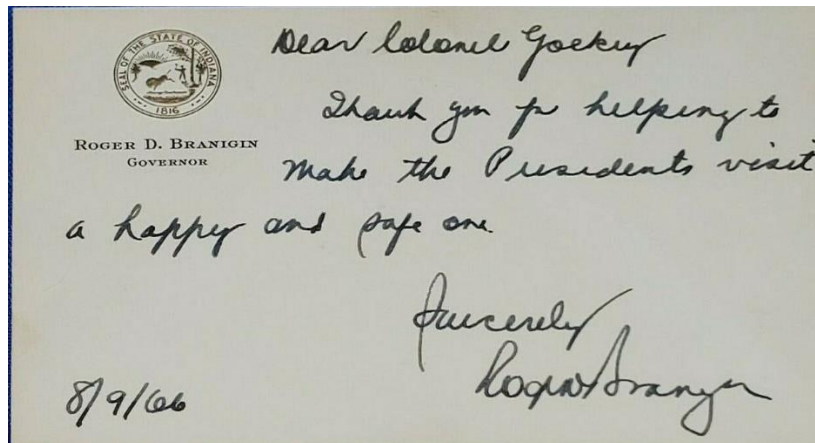 SEAL OF THE STATE OF INDIANA
1816
ROGER D. BRANIGIN
GOVERNOR
Dear Colonel
Thank you for helping to
make the Presidents visit
a happy and safe one.
Sincerely
Roger D Branigin
8/9/66